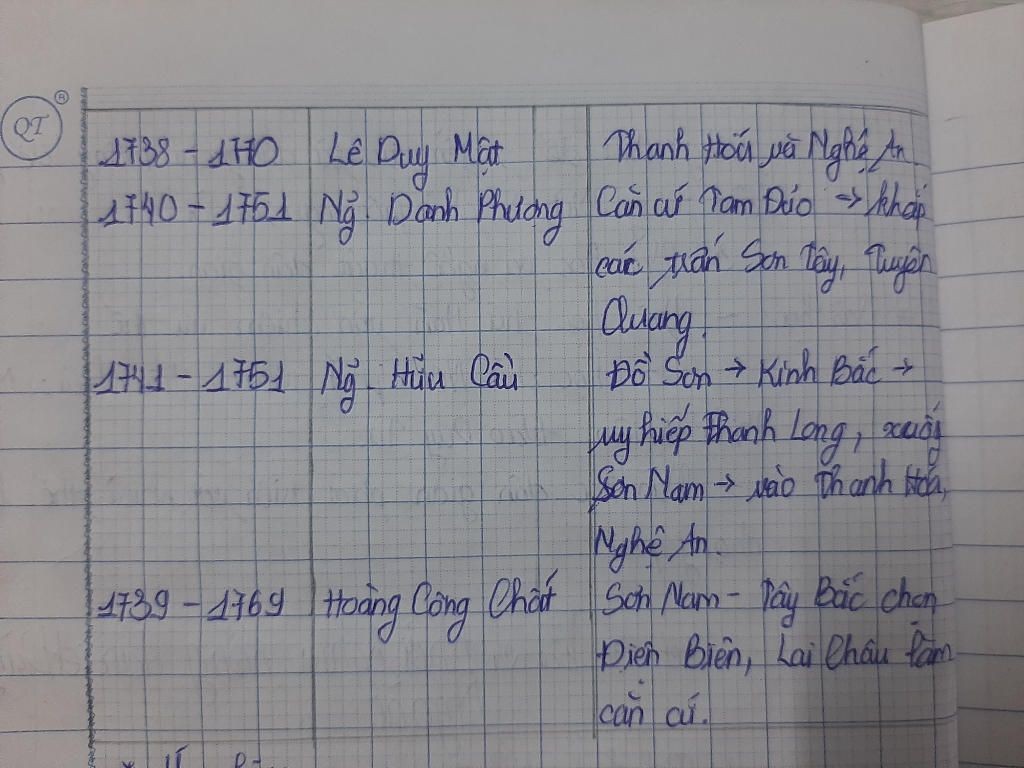 QT
1738 - 1770 Lê Duy Mật Thanh Hoá và Nghệ An
1740 - 1751 Ng̉ Danh Phượng Căn cứ Tam Đảo → khắp
các trấn Sơn Tây, Tuyên
Quang.
1741 - 1751 Ng̉ Hữu Cầu Đồ Sơn → Kinh Bắc →
uy hiếp Thanh Long, xuống
Sơn Nam → vào Thanh Hoá,
Nghệ An.
1739 - 1769 Hoàng Công Chất Sơn Nam - Tây Bắc chọn
Điện Biên, Lai Châu làm
căn cứ.